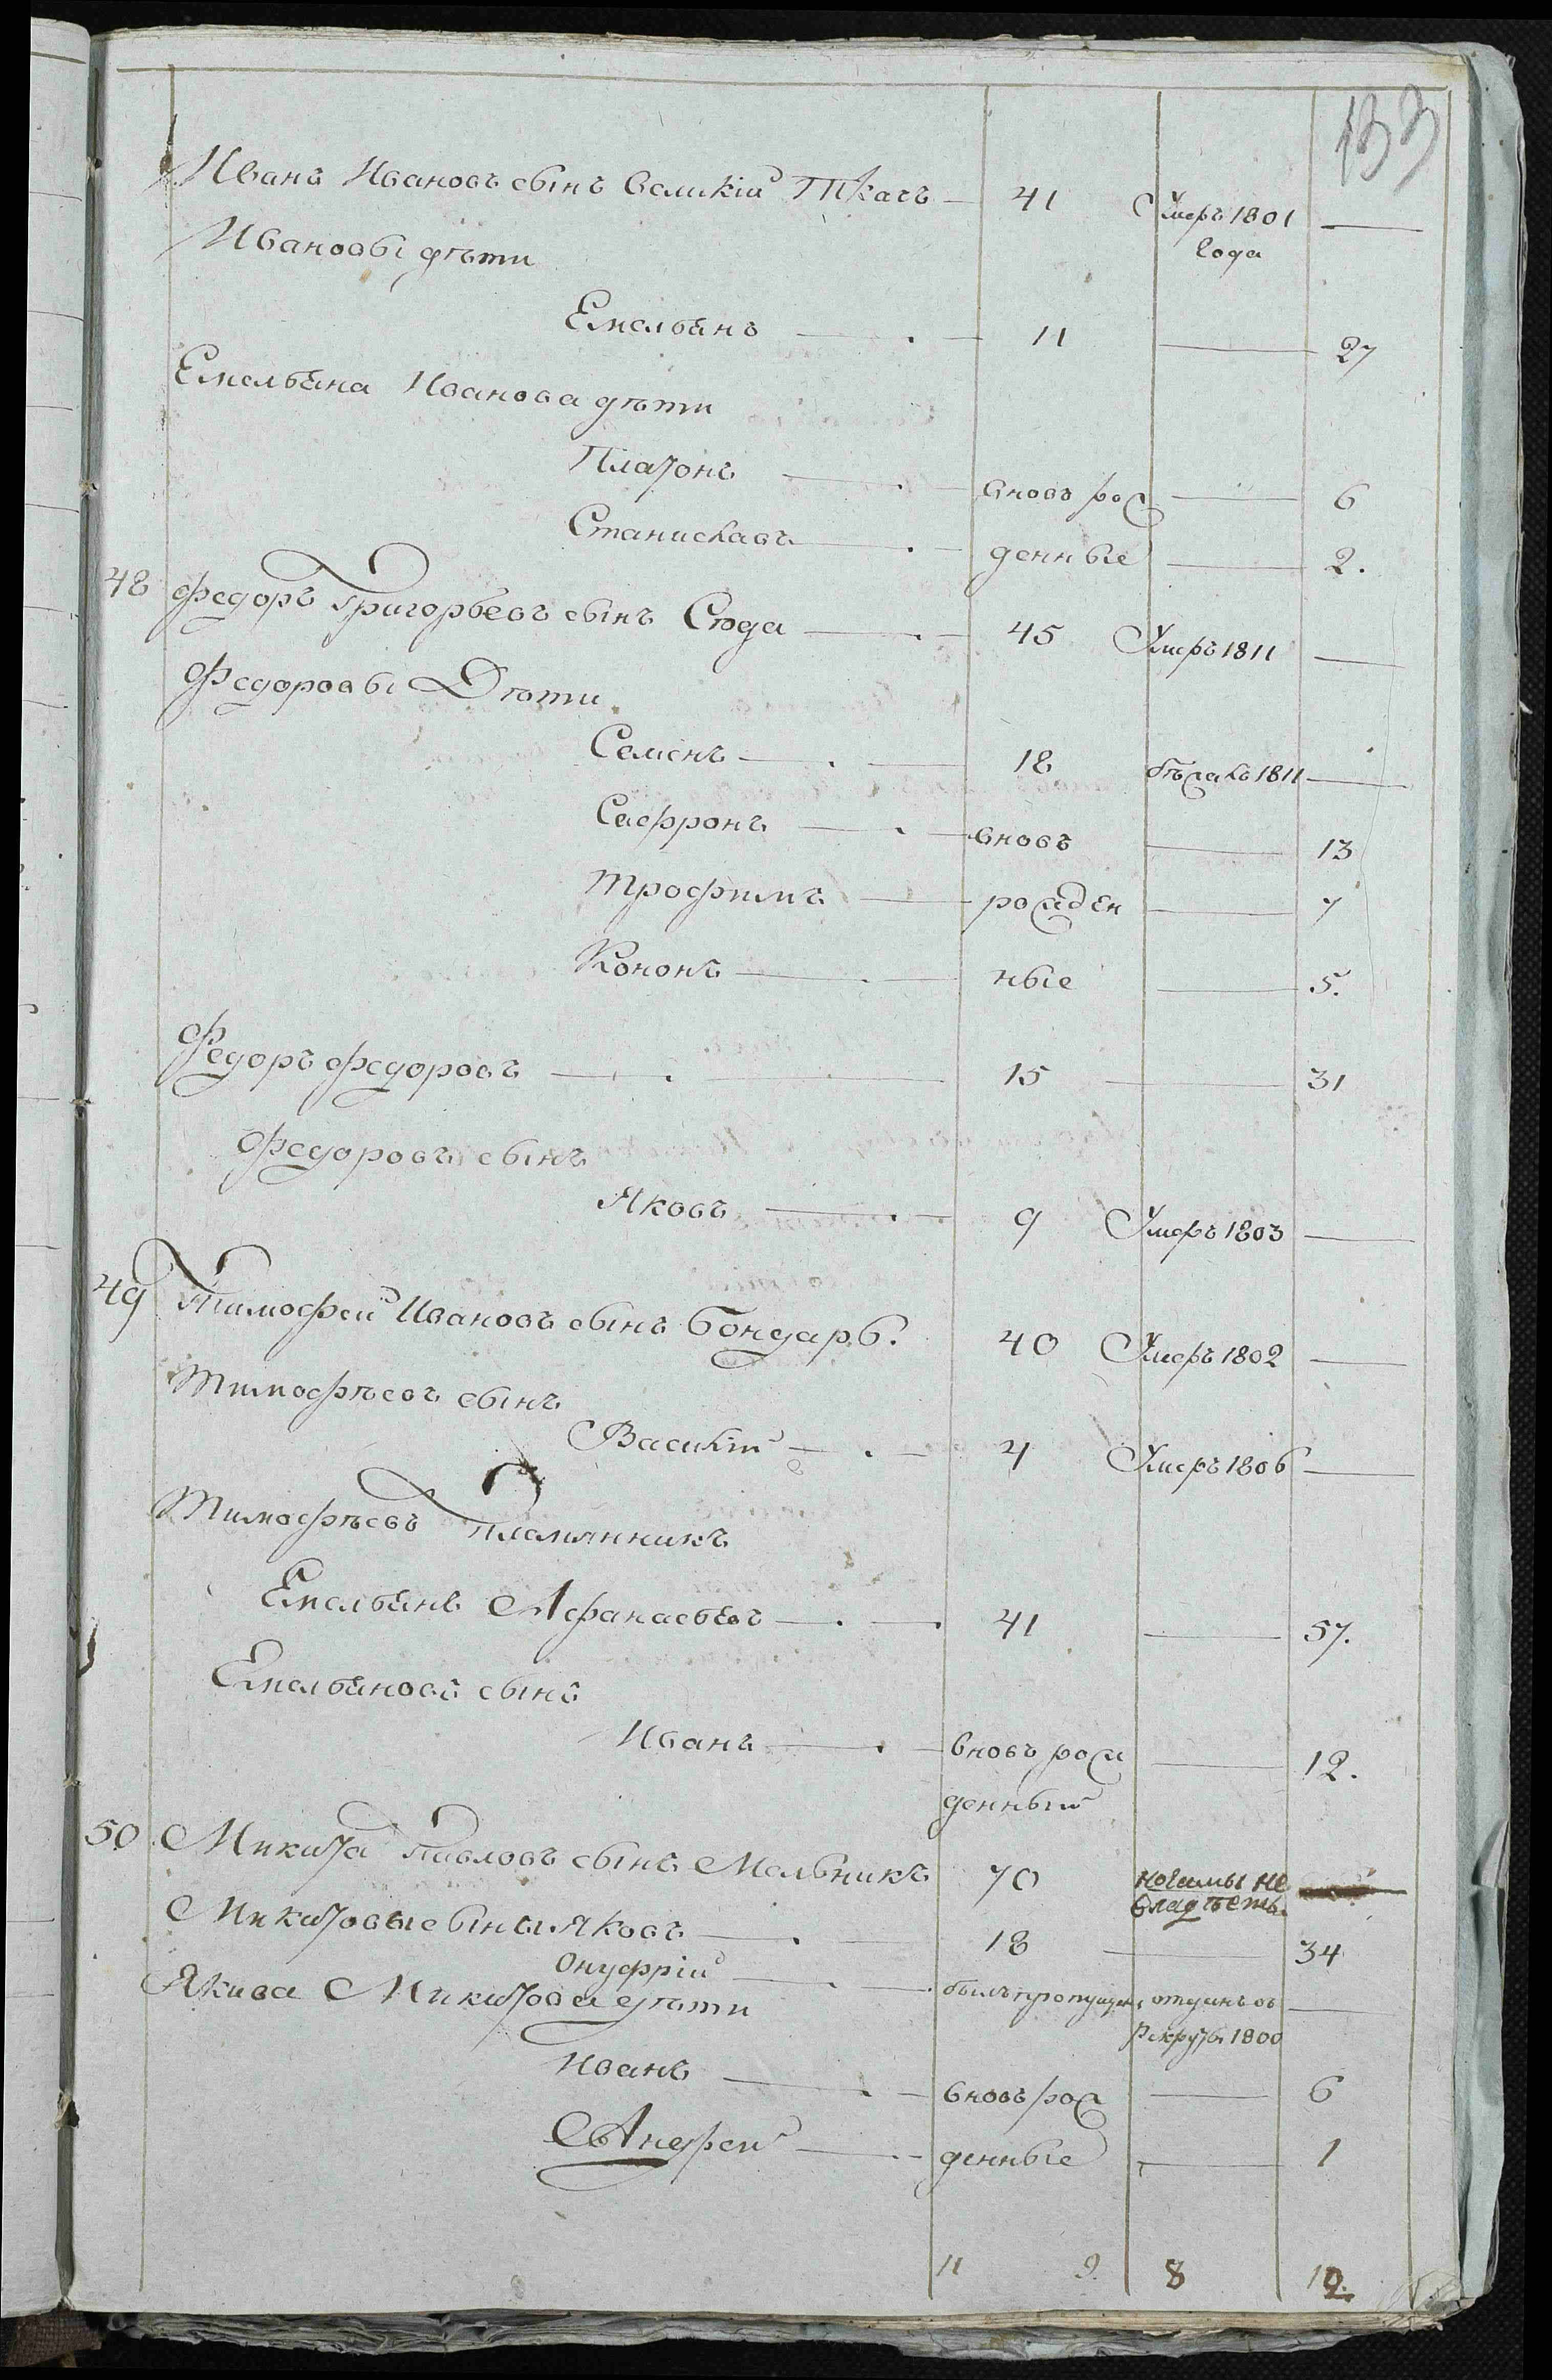 133
Иванъ Ивановъ сынъ Великій Ткачъ — 41 Умеръ 1801 —
года
Ивановы дѣти
Емельянъ — 11 — 27
Емельяна Иванова дѣти
Платонъ — вновь рож — 6
Станиславъ — денные — 2.
48 Федоръ Григорьевъ сынъ Сюда — 45 Умеръ 1811 —
Федоровы Дѣти
Семенъ — 18 бѣжалъ 1811 —
Сафронъ — вновь — 13
Трофимъ — рожден — 7
Кононъ — ные — 5.
Федоръ Федоровъ — 15 — 31
Федоровъ сынъ
Яковъ — 9 Умеръ 1803 —
49 Тимофей Ивановъ сынъ Бондарь. 40 Умеръ 1802 —
Тимофѣевъ сынъ
Василій — 4 Умеръ 1806 —
Тимофѣевъ Племянникъ
Емельянъ Афанасьевъ — 41 — 57.
Емельяновъ сынъ
Иванъ — вновь рож — 12.
денный
50 Микита Павловъ сынъ Мельникъ 70 ногамы не
владѣетъ.
Микитовы сыны Яковъ — 18 — 34
Онуфрій — былъ пропущенъ отданъ въ —
Рекруты 1800
Якива Микитова дѣти
Иванъ — вновь рож — 6
Андрей — денные — 1
11 9. 8 12.